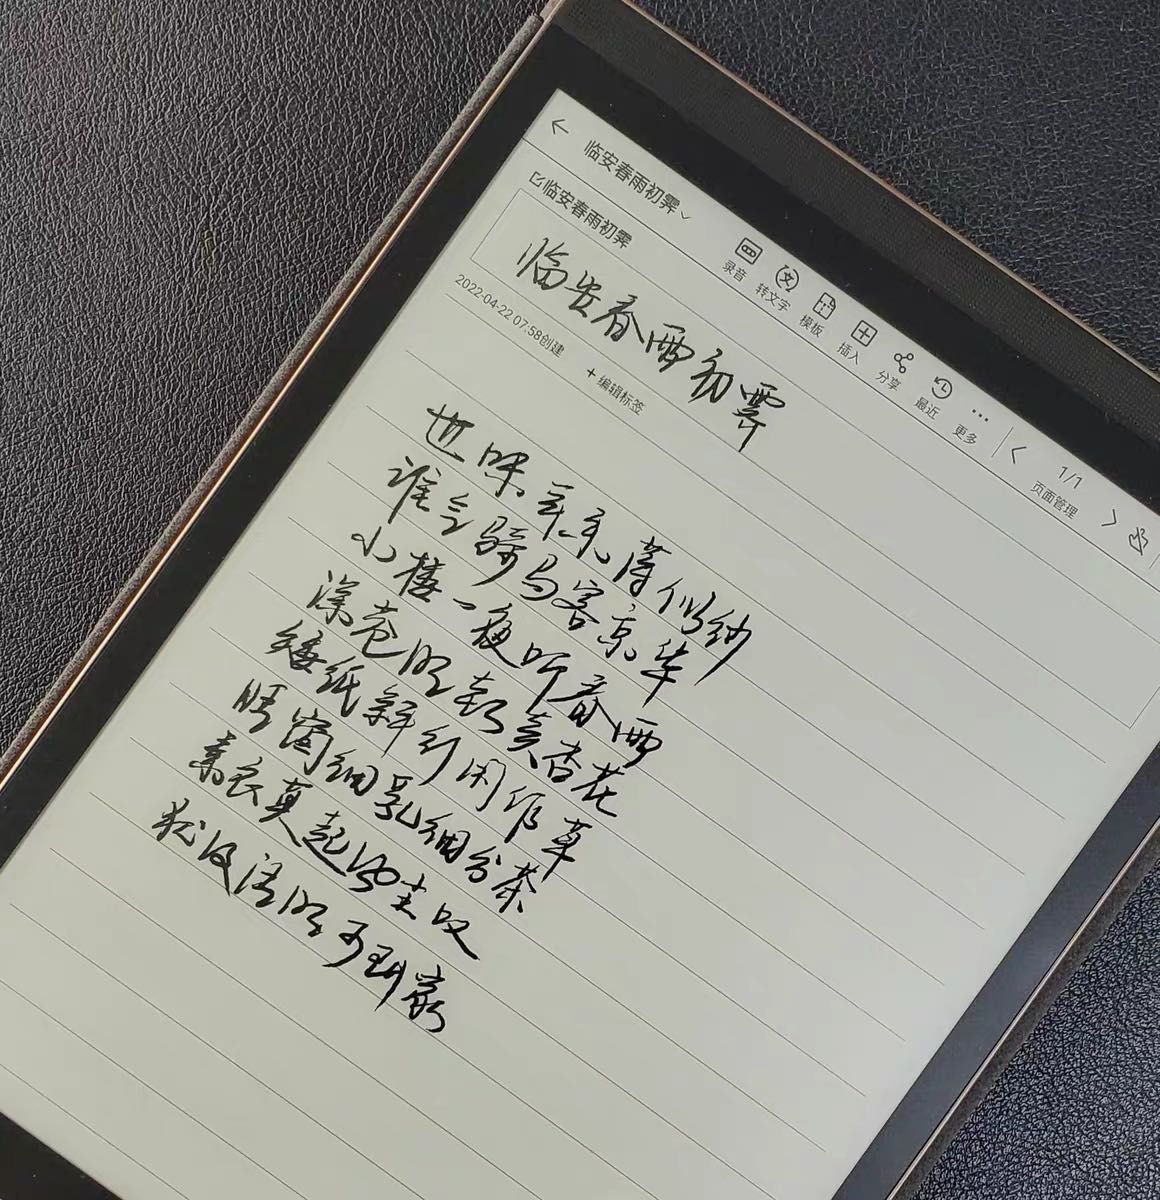 临安春雨初霁
录音 转文字 模板 插入 分享 最近 更多
1/1
页面管理
临安春雨初霁
临安春雨初霁
2022-04-22 07:58创建
+ 编辑标签
世味年来薄似纱
谁令骑马客京华
小楼一夜听春雨
深巷明朝卖杏花
矮纸斜行闲作草
晴窗细乳细分茶
素衣莫起风尘叹
犹及清明可到家